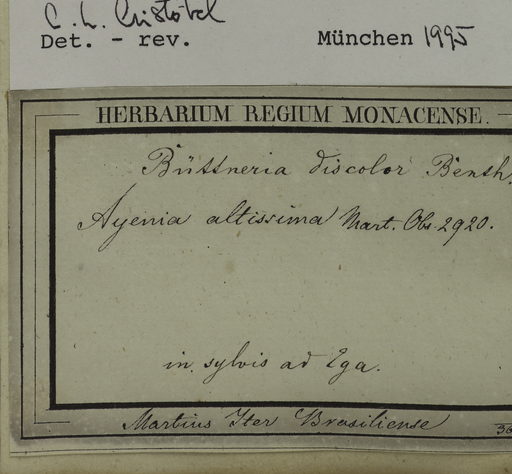 C. L. Cristóbal
Det. - rev. München 1995
HERBARIUM REGIUM MONACENSE.
Büttneria discolor Benth.
Ayenia altissima Mart. Obs. 2920.
in sylvis ad Ega.
Martius Iter Brasiliense